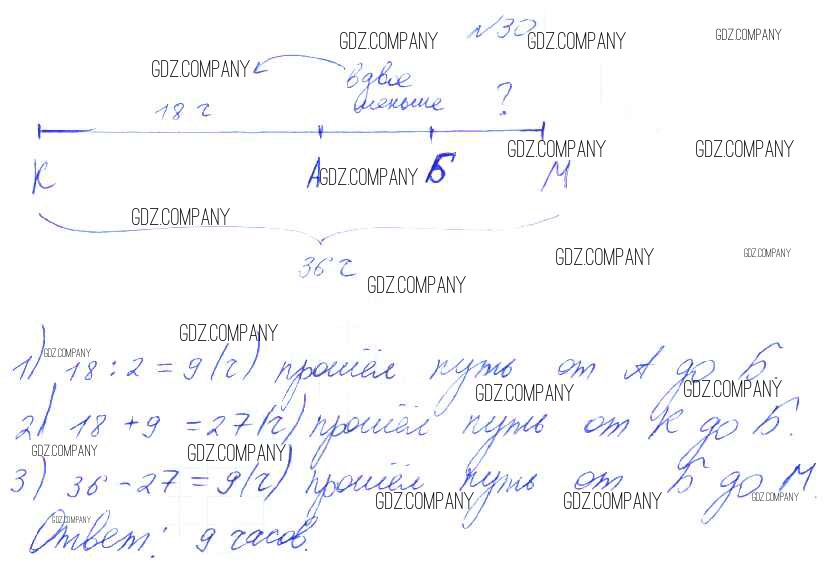 №30
GDZ.COMPANY GDZ.COMPANY GDZ.COMPANY
GDZ.COMPANY
вдвое
меньше
18 ч ?
GDZ.COMPANY GDZ.COMPANY
К А Б М
GDZ.COMPANY
GDZ.COMPANY
36 ч
GDZ.COMPANY GDZ.COMPANY
GDZ.COMPANY
GDZ.COMPANY
GDZ.COMPANY
1) 18 : 2 = 9 (ч) прошёл путь от А до Б.
GDZ.COMPANY GDZ.COMPANY
2) 18 + 9 = 27 (ч) прошёл путь от К до Б.
GDZ.COMPANY GDZ.COMPANY
3) 36 - 27 = 9 (ч) прошёл путь от Б до М.
GDZ.COMPANY GDZ.COMPANY GDZ.COMPANY
GDZ.COMPANY
Ответ: 9 часов.